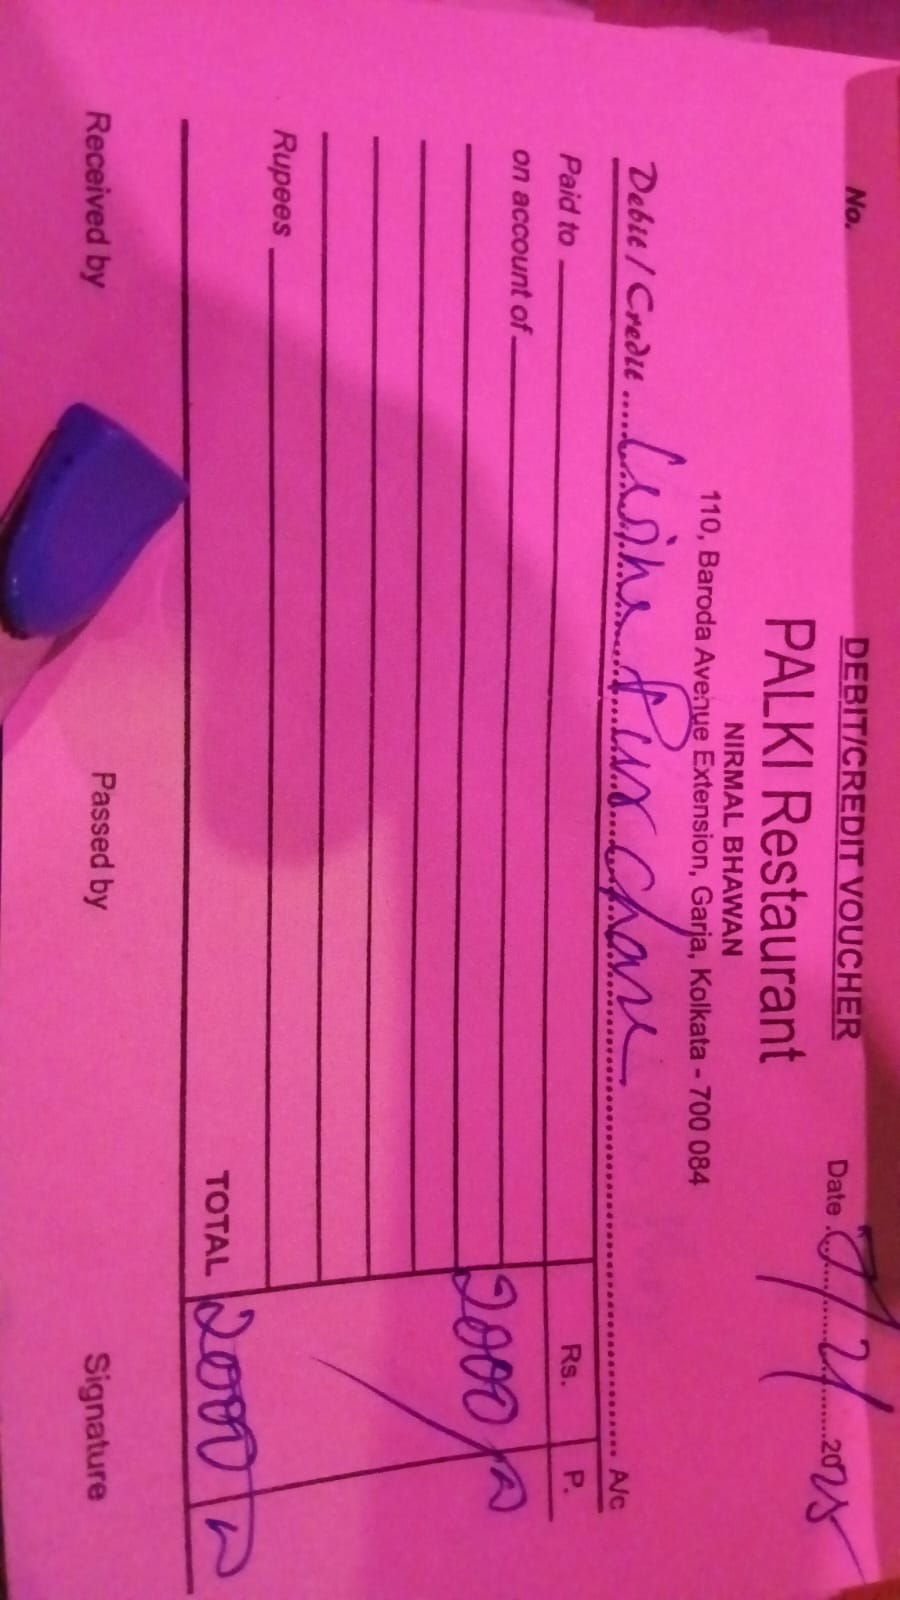 No.
DEBIT/CREDIT VOUCHER
PALKI Restaurant
Date
NIRMAL BHAWAN
110, Baroda Avenue Extension, Garia, Kolkata - 700 084
2025
Debit / Credit ..... Purchase ..... A/c
Rs. P.
Paid to
on account of
2000
Rupees
TOTAL 2000
Received by Passed by Signature